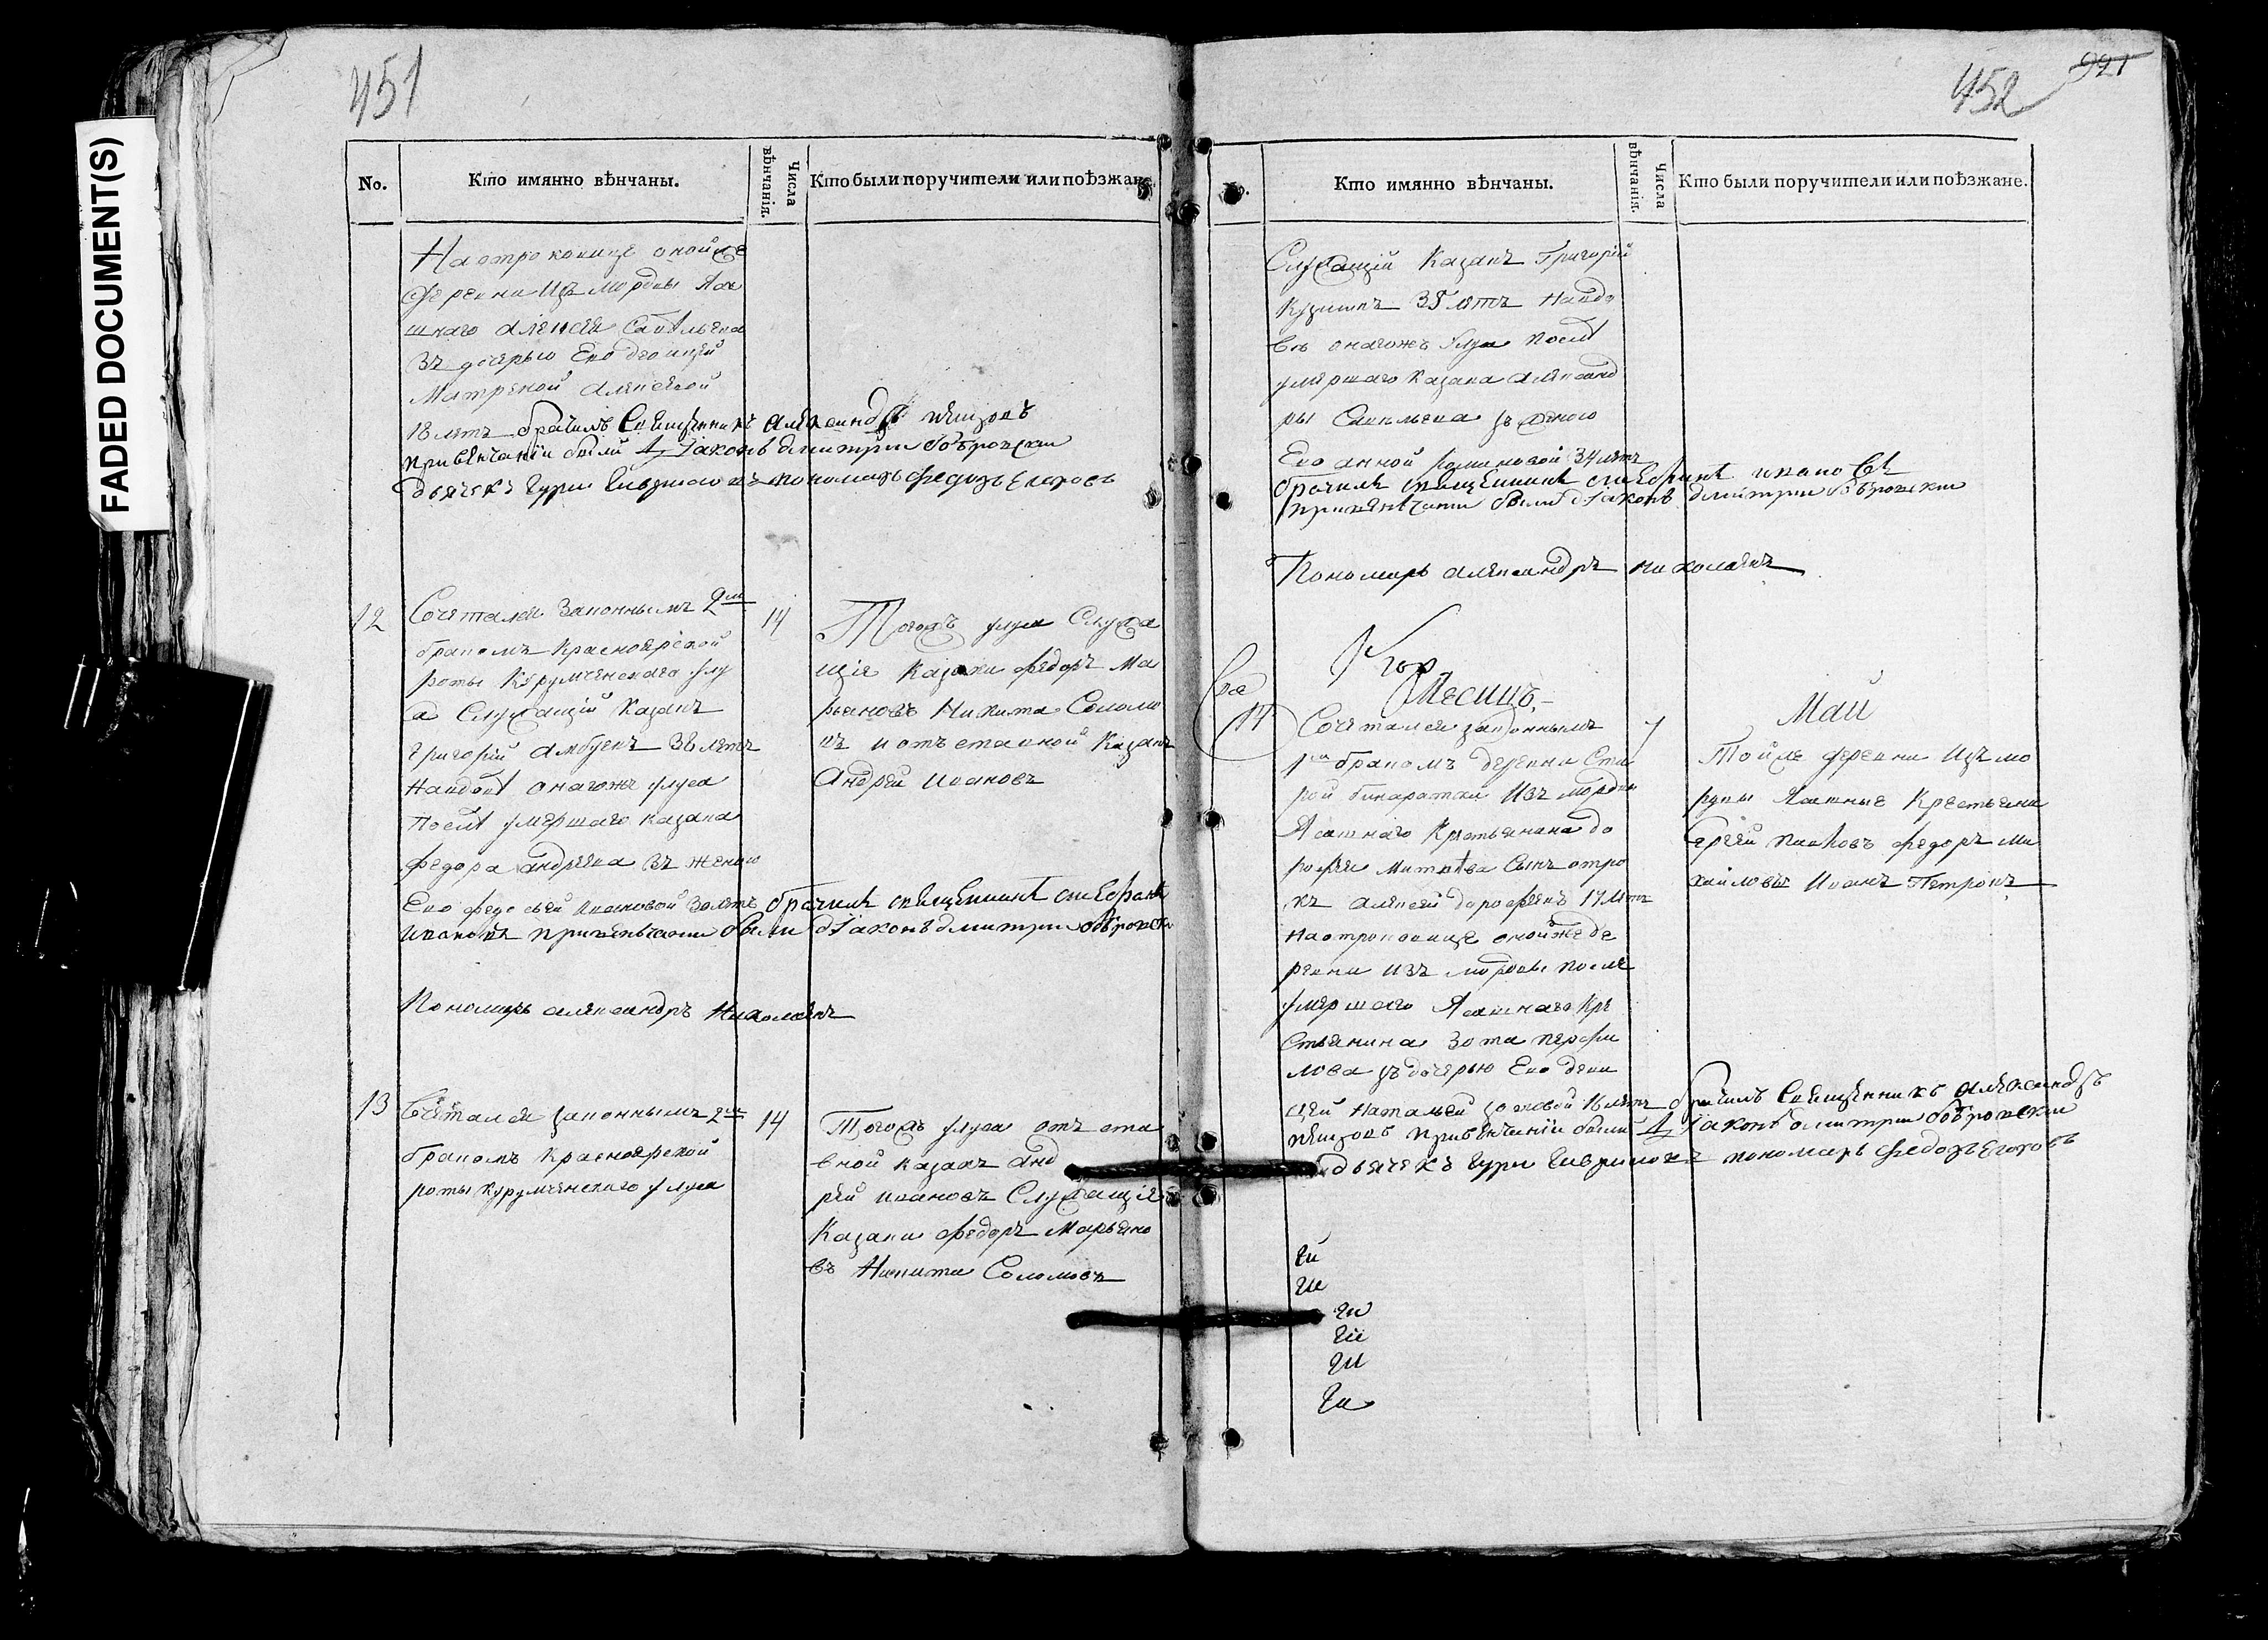 FADED DOCUMENT(S)
451
No.
Кто имянно вѣнчаны.
Числа вѣнчанія.
Кто были поручители или поѣзжане.
На отроковице оной же
деревни Изъ мордвы Яса
шнаго Алексея Савельева
Зъ дочерью Ево девицей
Матреной Алексевой
18 летъ брачилъ Священникъ Александръ
привѣнчаніи были Діаконъ дмитри бобровски
дьячекъ гури пономарь федоръ Егоровъ
12
Сочетался Законнымъ 2мъ
бракомъ Красноярской
роты Курумченскаго улу
са Служащій Казакъ
григорій Амбуевъ 38 летъ
На вдовѣ онагожъ улуса
Послѣ умершаго казака
федора андреева Зъ женою
Ево федосьей ивановой 30 летъ брачилъ священникъ стефанъ
ивановъ привенчании были діаконъ дмитри бобровски
Пономарь александръ Николаевъ
14
Тогожъ улуса Служа
щіе Казаки федоръ Ма
рьяновъ Никита Соломо
въ и отъставной Казакъ
Андрей Ивановъ
13
Сочетался законнымъ 2мъ
бракомъ Красноярской
роты курумченскаго улуса
14
Тогожъ улуса отъ ста
вной казакъ Анд
рей ивановъ Служащіе
Казаки федоръ Марьяно
въ Никита Соломовъ
452
921
Кто имянно вѣнчаны.
Числа вѣнчанія.
Кто были поручители или поѣзжане.
Служащій Казакъ Григорій
Кузминъ 35 летъ На вдо
вѣ онагожъ Улуса послѣ
умершаго казака александ
ры Савельева зъ женою
Ево анной романовой 34 летъ
брачилъ священникъ стефанъ ивановъ
привенчании были діаконъ дмитри бобровски
Пономарь александръ николаевъ
Месяцъ
Май
14
Сочетался законнымъ
1мъ бракомъ деревни Ста
рой бинаратки Изъ мордвы
Ясашнаго Крестьянина до
рофея Сынъ отро
къ алексей дорофеевъ 17 летъ
на отроковице оной же де
ревни изъ мордвы после
умершаго Ясашнаго Кре
стьянина Зота перфи
лова зъ дочерью Ево деви
цей Натальей зотовой 16 летъ брачилъ Священникъ Александръ
привѣнчаніи были Діаконъ дмитри бобровски
дьячекъ гури пономарь федоръ Егоровъ
7
Тойже деревни Изъ мо
рдвы Ясашные Крестьяне
Сергей федоръ ми
хайловъ Иванъ Петровъ